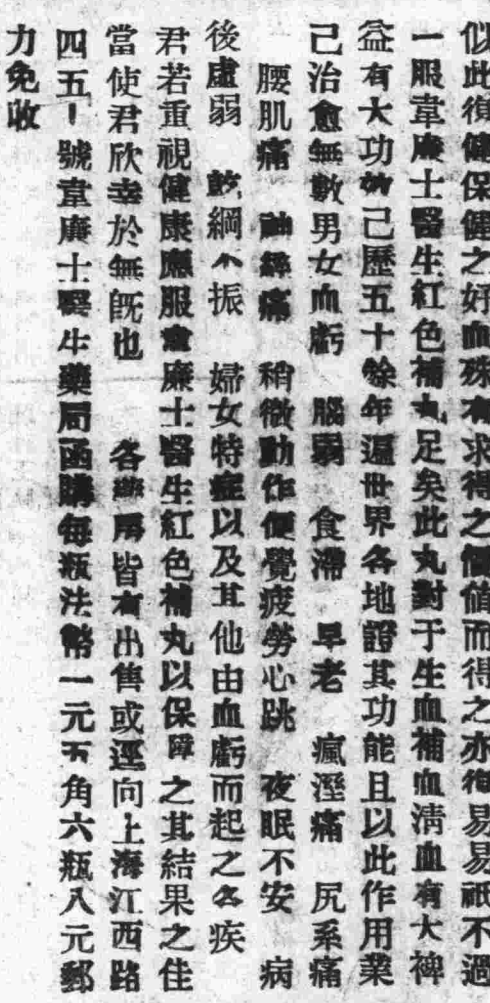 似此復健保健之好血殊有求得之價值而得之亦復易易祇不過
一服韋廉士醫生紅色補丸足矣此丸對于生血補血清血有大裨
益有大功效己歷五十餘年遍世界各地證其功能且以此作用業
己治愈無數男女血虧 腦弱 食滯 早老 瘋溼痛 尻系痛
腰肌痛 神經痛 稍微動作便覺疲勞心跳 夜眠不安 病
後虛弱 乾綱不振 婦女特症以及其他由血虧而起之各疾
君若重視健康應服韋廉士醫生紅色補丸以保障之其結果之佳
當使君欣幸於無既也 各藥房皆有出售或逕向上海江西路
四五一號韋廉士醫生藥局函購每瓶法幣一元五角六瓶八元郵
力免收